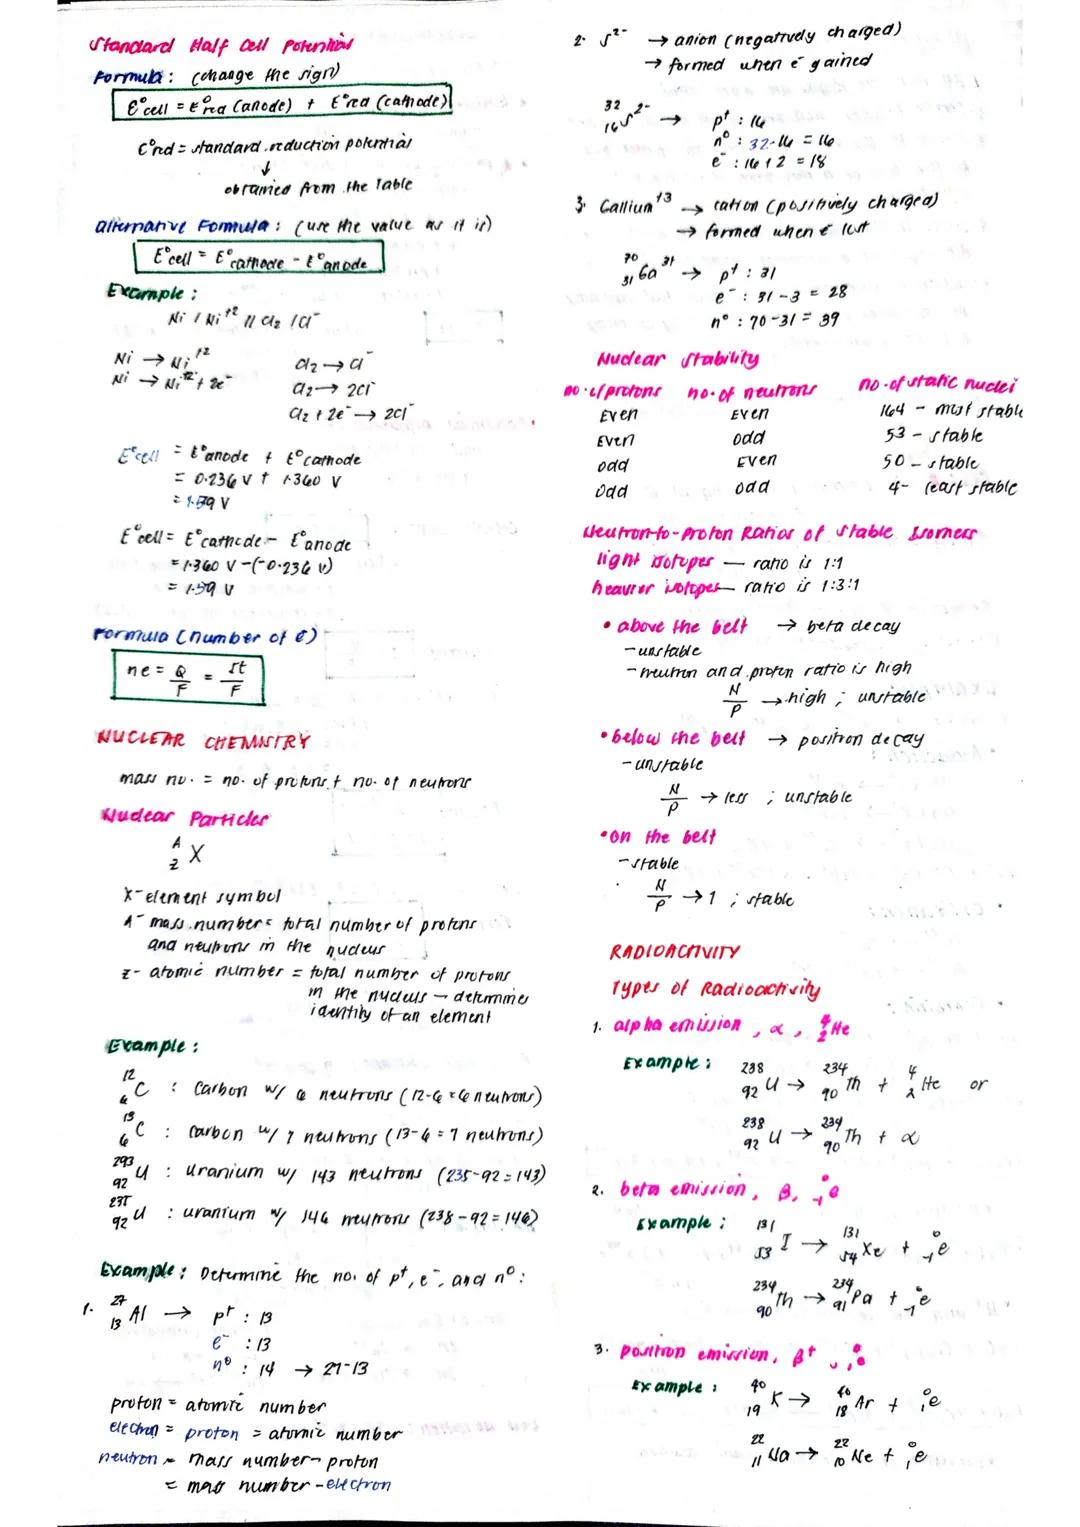 Standard Half Cell Potentials
Formula: (change the sign)
E°cell = E°red (anode) + E°red (cathode)
E°red = standard reduction potential
↓
obtained from the Table
Alternative Formula: (use the value as it is)
E°cell = E°cathode - E°anode
Example:
Ni / Ni+2 // Cl2 / Cl-
Ni → Ni+2
Ni → Ni+2 + 2e-
Cl2 → Cl-
Cl2 → 2Cl-
Cl2 + 2e- → 2Cl-
E°cell = E°anode + E°cathode
= 0.236 V + 1.360 V
= 1.59 V
E°cell = E°cathode - E°anode
= 1.360 V - (-0.236 V)
= 1.59 V
Formula (number of e-)
ne = Q/F = It/F
NUCLEAR CHEMISTRY
mass no. = no. of protons + no. of neutrons
Nuclear Particles
A
Z X
X - element symbol
A - mass number = total number of protons
and neutrons in the nucleus
Z - atomic number = total number of protons
in the nucleus - determines
identity of an element
Example:
12 6 C : Carbon w/ 6 neutrons (12-6 = 6 neutrons)
13 6 C : Carbon w/ 7 neutrons (13-6 = 7 neutrons)
293 92 U : Uranium w/ 143 neutrons (235-92 = 143)
235 92 U : uranium w/ 146 neutrons (238-92 = 146)
Example: Determine the no. of p+, e-, and n°:
1. 27 13 Al → p+ : 13
e- : 13
n° : 14 → 27-13
proton = atomic number
electron = proton = atomic number
neutron = mass number - proton
= mass number - electron
2. S2- → anion (negatively charged)
→ formed when e- gained
32 16 S 2- → p+ : 16
n° : 32-16 = 16
e- : 16+2 = 18
3. Gallium+3 → cation (positively charged)
→ formed when e- lost
70 31 Ga 3+ → p+ : 31
e- : 31-3 = 28
n° : 70-31 = 39
Nuclear Stability
no. of protons no. of neutrons no. of static nuclei
Even Even 164 - most stable
Even odd 53 - stable
odd Even 50 - stable
odd odd 4 - least stable
Neutron-to-Proton Ratios of Stable Isomers
light isotopes - ratio is 1:1
heavier isotopes - ratio is 1:3:1
• above the belt → beta decay
- unstable
- neutron and proton ratio is high
N/P → high ; unstable
• below the belt → positron decay
- unstable
N/P → less ; unstable
• on the belt
- stable
N/P → 1 ; stable
RADIOACTIVITY
Types of Radioactivity
1. alpha emission, α, 4 2 He
Example: 238 92 U → 234 90 Th + 4 2 He or
238 92 U → 234 90 Th + α
2. beta emission, β, 0 -1 e
Example: 131 53 I → 131 54 Xe + 0 -1 e
234 90 Th → 234 91 Pa + 0 -1 e
3. positron emission, β+, 0 1 e
Example: 40 19 K → 40 18 Ar + 0 1 e
22 11 Na → 22 10 Ne + 0 1 e